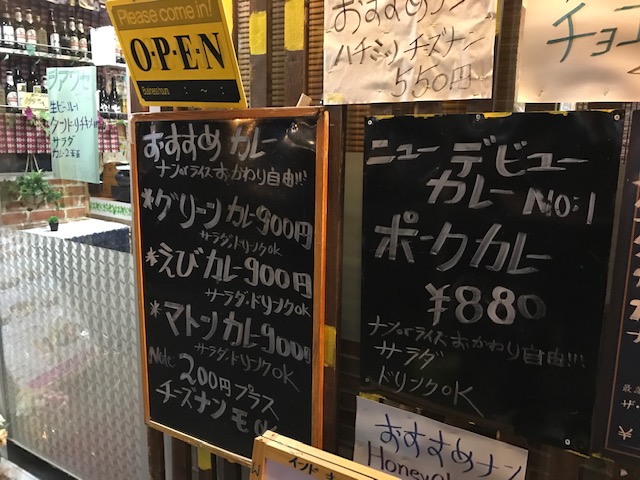 Please come in!
O·P·E·N
Business hours
~
おすすめナン
ハチミツチーズナン
550円
チョコ
生ビール
サラダ
おすすめ カレー
ナンorライスおかわり自由!!!
*グリーンカレー900円
サラダ・ドリンクOK
*えびカレー900円
サラダ・ドリンクOK
*マトンカレー900円
サラダ・ドリンクOK
Note
200円プラス
チーズナンモOK
ニューデビュー
カレー No:1
ポークカレー
¥880
ナンorライスおかわり自由!!!
サラダ
ドリンクOK
おすすめナン
Honey
インド